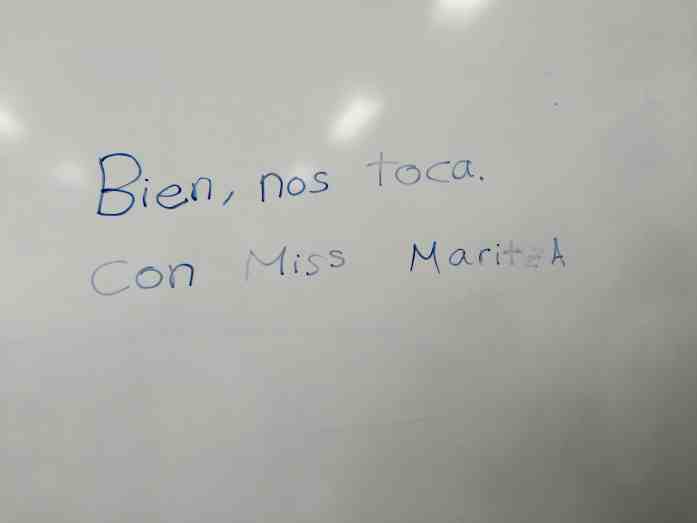 Bien, nos toca.
Con Miss MaritzA